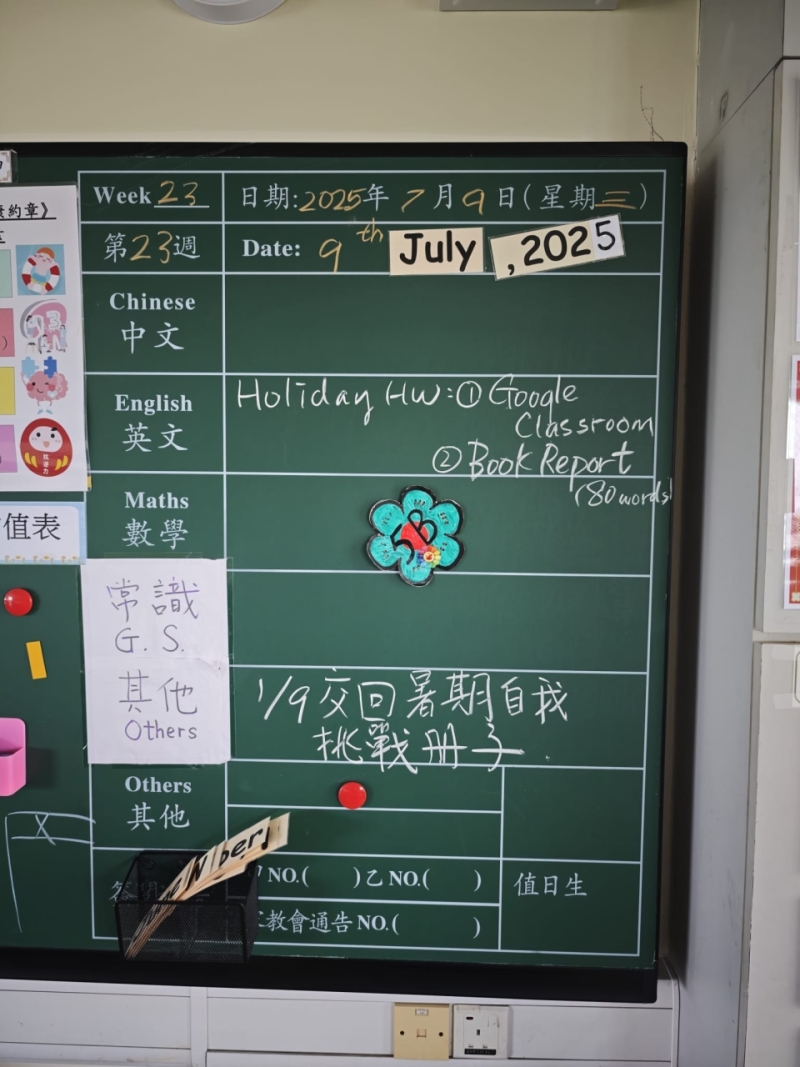 Week 23
日期:2025年7月9日(星期三)
第23週
Date: 9th July, 2025
約章》
Chinese
中文
English
英文
Holiday HW:① Google
Classroom
② Book Report
(80 words)
值表
Maths
數學
5B
常識
G. S.
其他
Others
1/9交回暑期自我
挑戰册子.
Others
其他
ber
NO.( )乙 NO.( )
教會通告 NO.( )
值日生